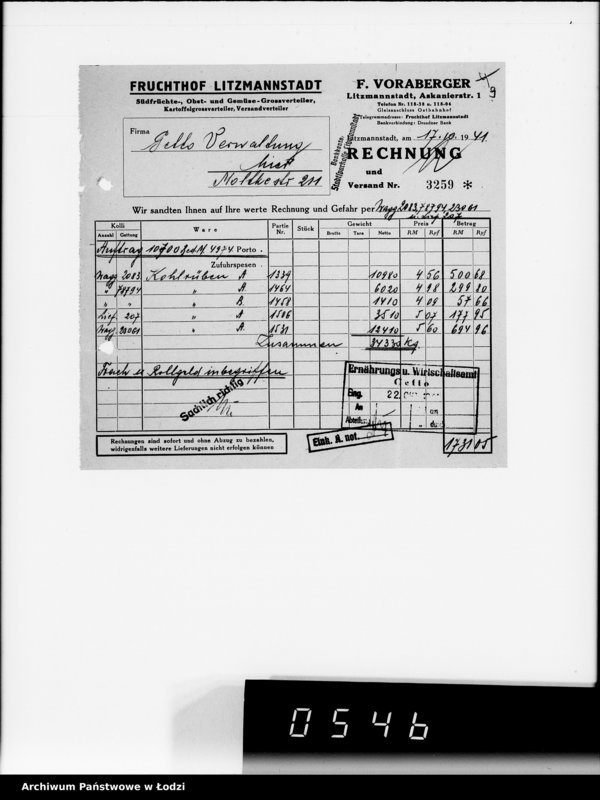 FRUCHTHOF LITZMANNSTADT
Südfrüchte-, Obst- und Gemüse-Grossverteiler,
Kartoffelgrossverteiler, Versandverteiler
F. VORABERGER
Litzmannstadt, Askanierstr. 1
Telefon Nr. 118-38 u. 118-04
Gleisanschluss Ostbahnhof
Telegrammadresse: Fruchthof Litzmannstadt
Bankverbindung: Dresdner Bank
Firma
Getto Verwaltung
hier
Moltkestr 211
Litzmannstadt, am 17.10.1941
RECHNUNG
und
Versand Nr. 3259 *
Wir sandten Ihnen auf Ihre werte Rechnung und Gefahr per Wagg 2083, 78794, 23061
u. Lief. 207
Kolli Ware Partie Nr. Stück Gewicht Preis Betrag
Anzahl Gattung Brutto Tara Netto RM Rpf RM Rpf
Auftrag 10700 4974 Porto
Zufuhrspesen
Wagg 2083 Kohlrüben A 1339 10980 4 56 500 68
" 78794 " A 1464 6020 4 98 299 80
" " " B. 1458 1410 4 09 57 66
Lief. 207 " A 1506 3510 5 07 177 95
Wagg. 23061 " A. 1531 12410 5 60 694 96
Zusammen 34330 Kg
Frach u Rollgeld inbegriffen
Sachlich richtig
Ernährungs u. Wirtschaftsamt
Getto
Eing. 22
An
an
Einh. A. not.
1731 05
Rechnungen sind sofort und ohne Abzug zu bezahlen,
widrigenfalls weitere Lieferungen nicht erfolgen können
0546
Archiwum Państwowe w Łodzi